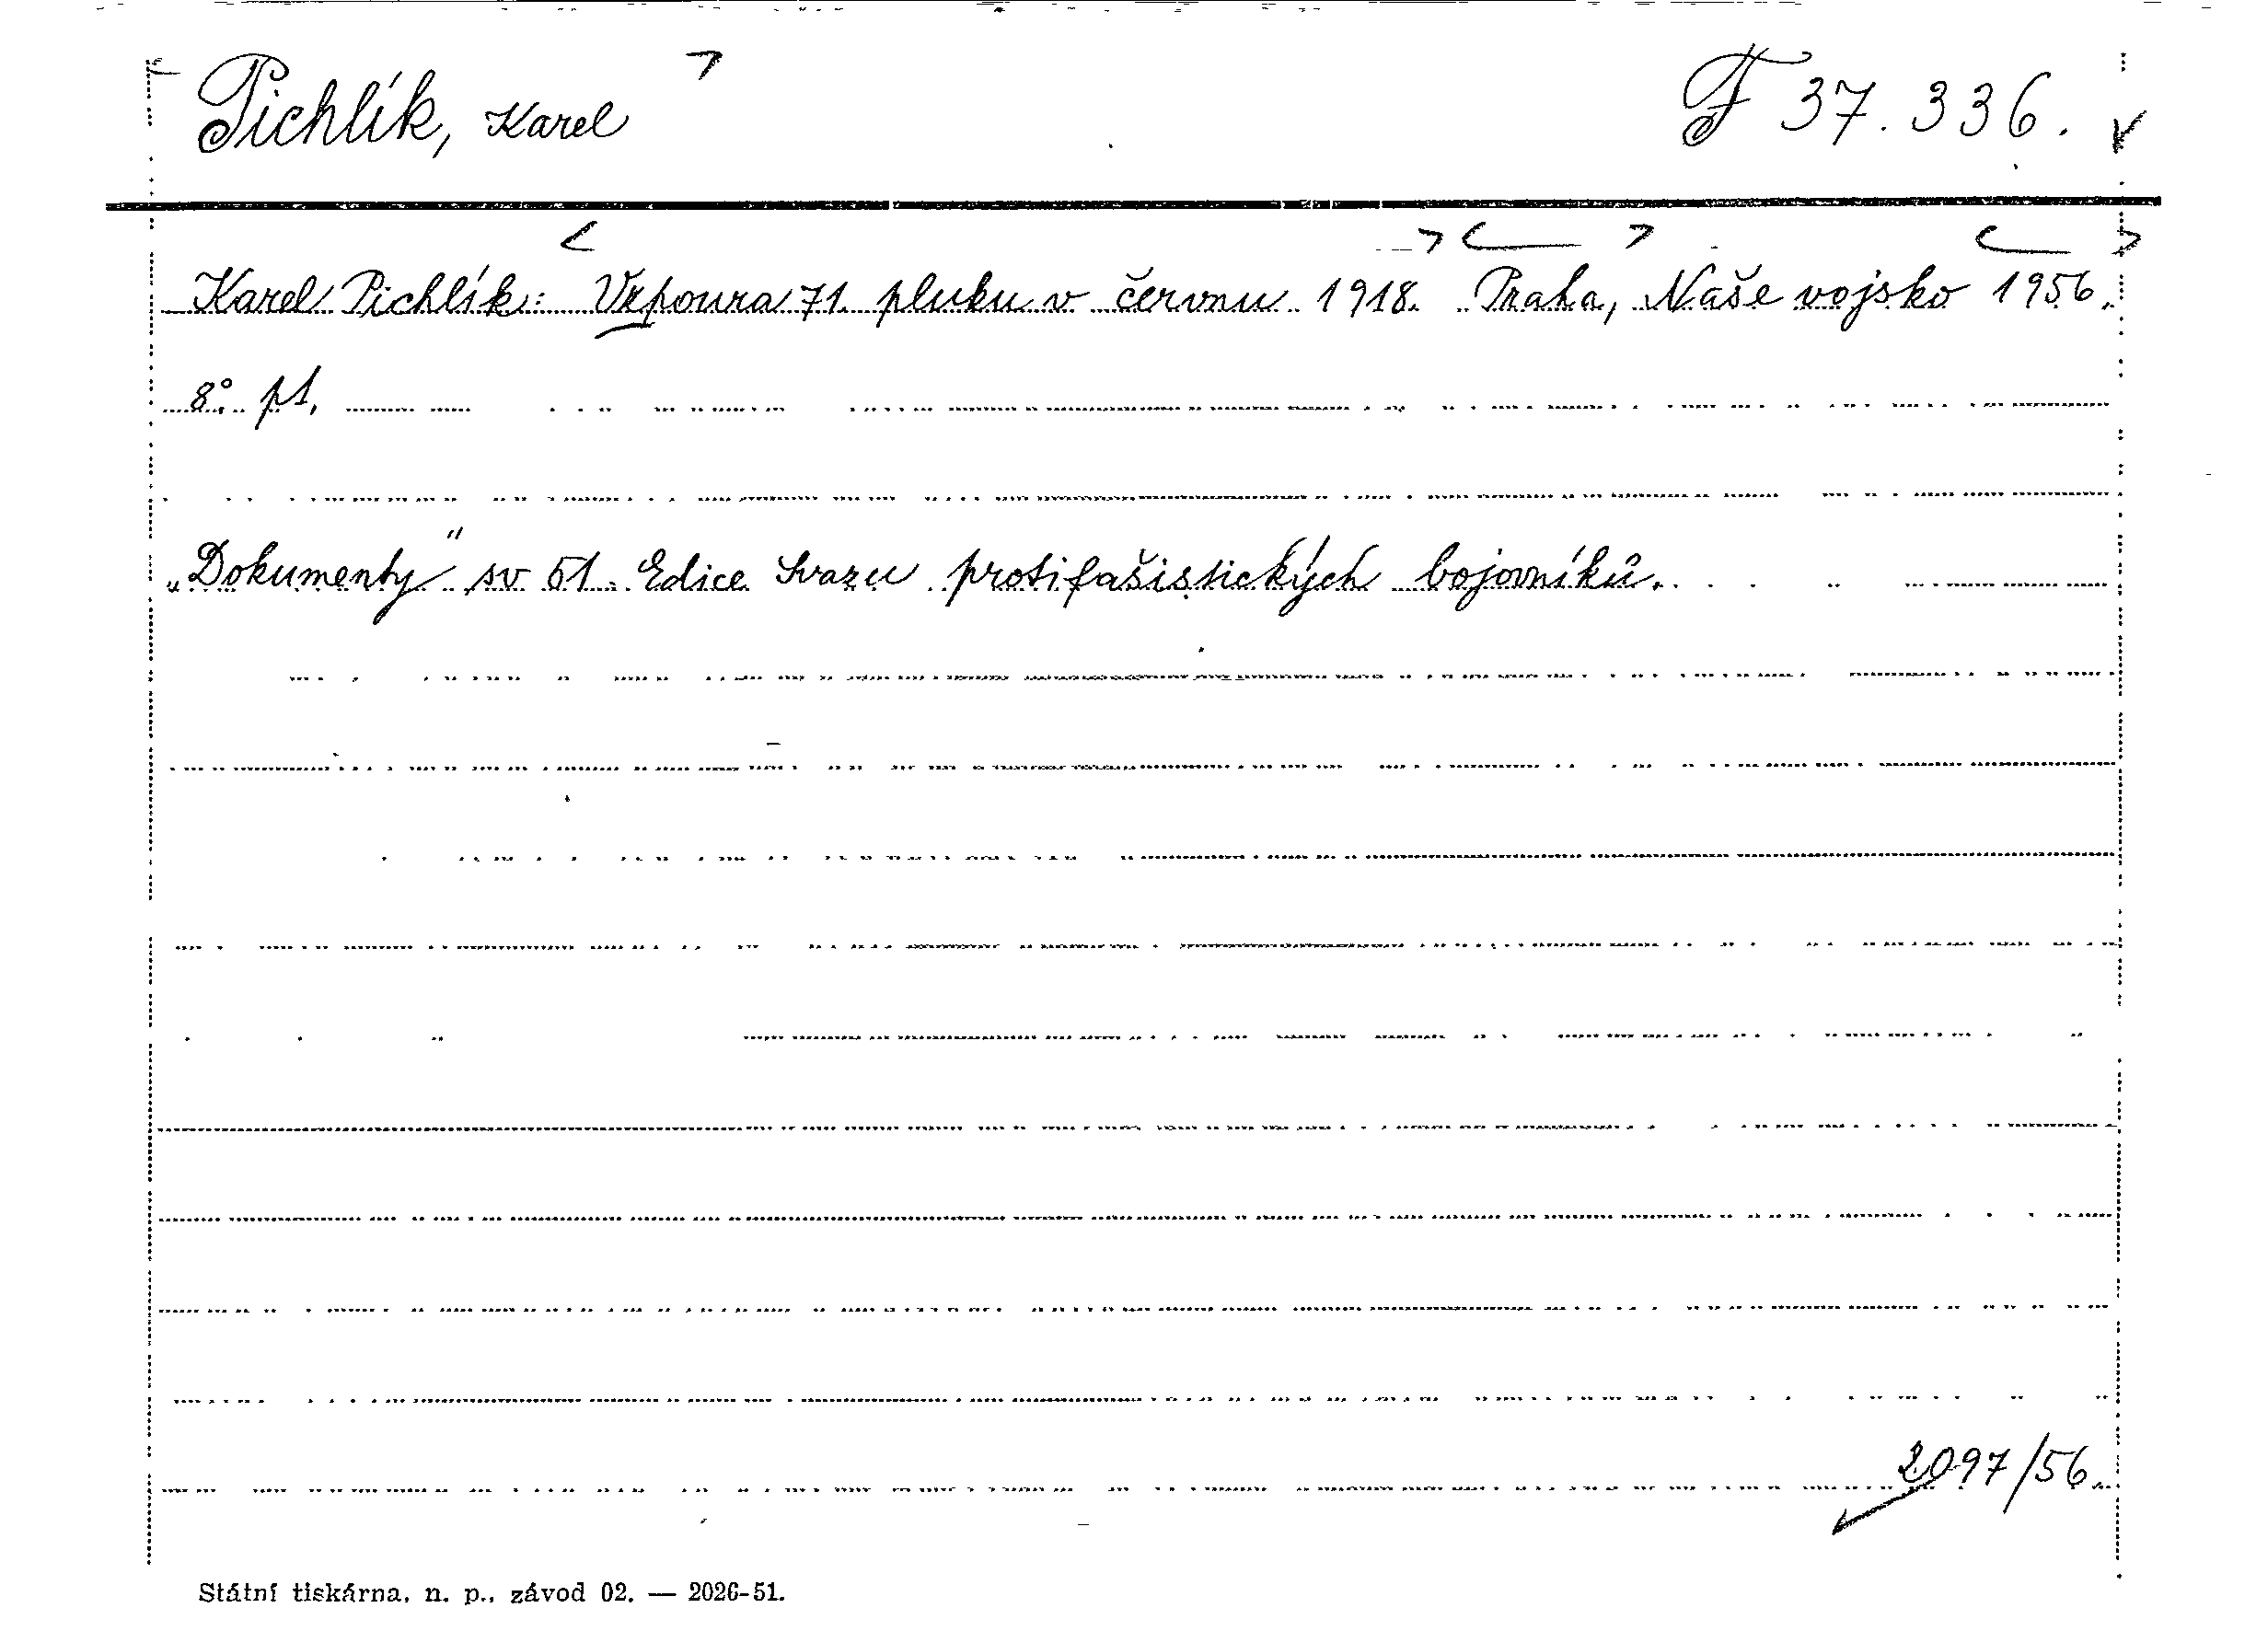 Pichlík, Karel
F 37.336.
Karel Pichlík: Vzpoura 71. pluku v červnu 1918. Praha, Naše vojsko 1956.
8°. pl.
„Dokumenty" sv 51. Edice Svazu protifašistických bojovníků.
2097/56.
Státní tiskárna, n. p., závod 02. — 2026-51.